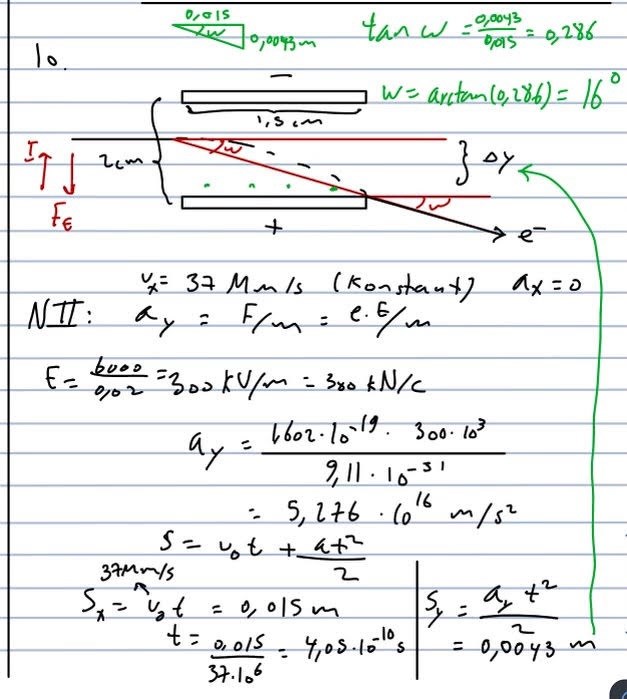 0,015
w 0,0043 m
tan w = 0,0043/0,015 = 0,286
10.
w = arctan(0,286) = 16°
−
1,5 cm
I 2cm w } ΔY
F_E
w
+ e⁻
v_x = 37 Mm/s (Konstant) a_x = 0
NII: a_y = F/m = e.E/m
E = 6000/0,02 = 300 kV/m = 300 kN/C
a_y = 1602·10⁻¹⁹ · 300·10³ / 9,11·10⁻³¹
= 5,276 · 10¹⁶ m/s²
s = v₀t + at²/2
37Mm/s
S_x = v₀t = 0,015 m
t = 0,015/37·10⁶ = 4,05·10⁻¹⁰ s
S_y = a_y t²/2
= 0,0043 m